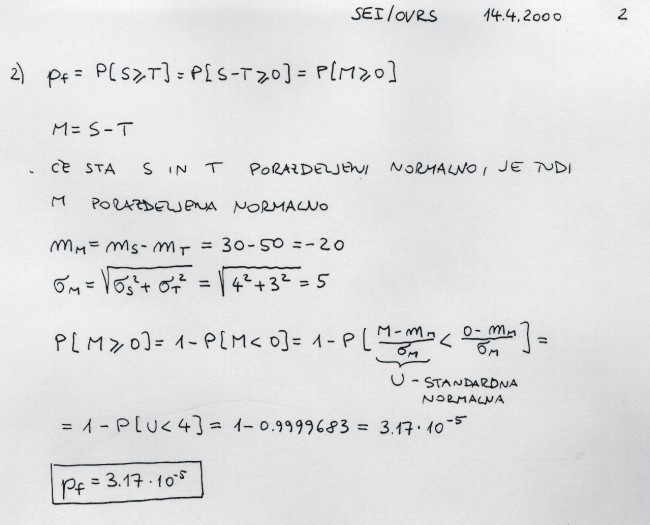 SEI/OVRS 14.4.2000 2
2) Pf = P[S⩾T] = P[S-T⩾0] = P[M⩾0]
M = S-T
. ČE STA S IN T PORAZDELJENI NORMALNO, JE TUDI
M PORAZDELJENA NORMALNO
m_M = m_S - m_T = 30-50 = -20
σ_M = √(σ_S² + σ_T²) = √(4²+3²) = 5
P[M⩾0] = 1-P[M<0] = 1-P[(M-m_M)/σ_M < (0-m_M)/σ_M] =
U - STANDARDNA
NORMALNA
= 1-P[U<4] = 1-0.9999683 = 3.17·10⁻⁵
Pf = 3.17·10⁻⁵